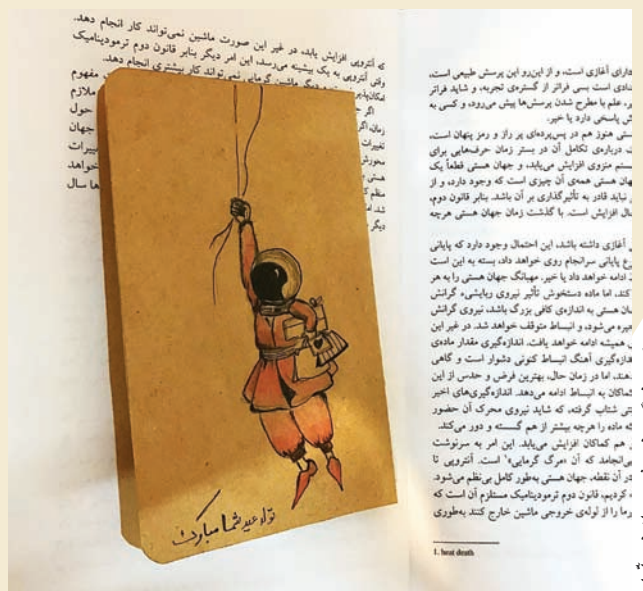 که آنتروپی افزایش یابد، در غیر این صورت ماشین نمی‌تواند کار انجام دهد.
وقتی آنتروپی به یک بیشینه می‌رسد، این امر دیگر بنابر قانون دوم ترمودینامیک
امکان‌پذیر دیگر ماشین گرمایی نمی‌تواند کار بیشتری انجام دهد.
اگر مفهوم
زمان، اگر ملازم
تغییرات حول
محورش جهان
هستی تغییرات
منظم خواهد
شد، اما ها سال
دیگر
تولد عید شما مبارک
دارای آغازی است، و از این‌رو این پرسش طبیعی است،
دادی است بسی فراتر از گستره‌ی تجربه، و شاید فراتر
علم با مطرح شدن پرسش‌ها پیش می‌رود، و کسی به
پاسخی دارد یا خیر.
ستی هنوز هم در پس‌پرده‌ای پر راز و رمز پنهان است،
درباره‌ی تکامل آن در بستر زمان حرف‌هایی برای
ستم منزوی افزایش می‌یابد، و جهان هستی قطعاً یک
هان هستی همه‌ی آن چیزی است که وجود دارد، و از
نباید قادر به تأثیرگذاری بر آن باشد. بنابر قانون دوم،
ال افزایش است. با گذشت زمان جهان هستی هرچه
آغازی داشته باشد، این احتمال وجود دارد که پایانی
ع پایانی سرانجام روی خواهد داد، بسته به این است
ادامه خواهد داد یا خیر. مهبانگ جهان هستی را به هر
کند، اما ماده دستخوش تأثیر نیروی ربایشی، گرانش
ان هستی به اندازه‌ی کافی بزرگ باشد، نیروی گرانش
یره می‌شود، و انبساط متوقف خواهد شد. در غیر این
همیشه ادامه خواهد یافت. اندازه‌گیری مقدار ماده‌ی
دازه‌گیری آهنگ انبساط کنونی دشوار است و گاهی
دهند، اما در زمان حال، بهترین فرض و حدس از این
شماکان به انبساط ادامه می‌دهد. اندازه‌گیری‌های اخیر
تی شتاب گرفته، که شاید نیروی محرک آن حضور
ه ماده را هرچه بیشتر از هم گسسته و دور می‌کند.
هم کماکان افزایش می‌یابد. این امر به سرنوشت
ی‌انجامد که آن «مرگ گرمایی»¹ است. آنتروپی تا
در آن نقطه، جهان هستی به‌طور کامل بی‌نظم می‌شود.
کردیم، قانون دوم ترمودینامیک مستلزم آن است که
رما را از لوله‌ی خروجی ماشین خارج کنند به‌طوری
1. heat death